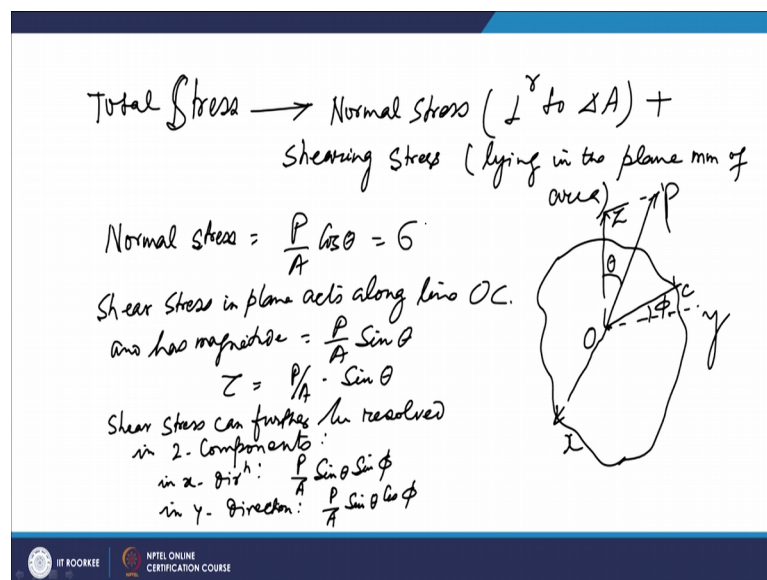 Total Stress → Normal Stress (⊥r to ΔA) +
Shearing Stress (lying in the plane mm of
area)
Normal stress = P/A Cosθ = σ
Shear Stress in plane acts along line OC.
and has magnitude = P/A Sinθ
τ = P/A · Sinθ
Shear Stress can further be resolved
in 2-Components:
in x-dirn: P/A Sinθ Sinϕ
in y-direction: P/A Sinθ Cosϕ
Z
P
θ
C
ϕ
O
y
x
IIT ROORKEE
NPTEL ONLINE
CERTIFICATION COURSE